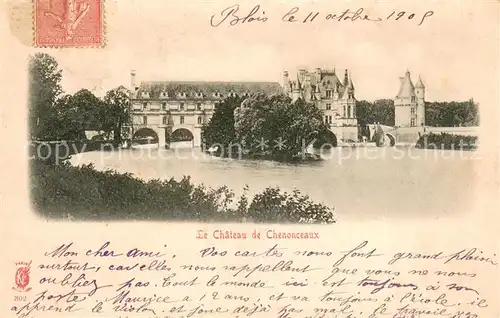 Blois le 11 octobre 1905
Le Château de Chenonceaux
Mon cher ami, Vos cartes nous font grand plaisir
surtout, car elles nous rappellent que vous ne nous
oubliez pas. Tout le monde ici est toujours à son
poste. Maurice a 12 ans, et va toujours à l'école, il
apprend le violon, et joue déjà pas mal. le travail
PARIS
202